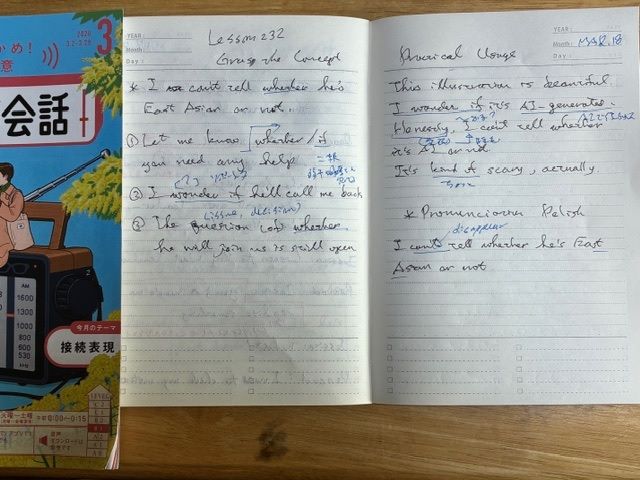 3
3.2-3.28
会話
AM
1600
1300
1000
800
600
530
kHz
今月のテーマ
接続表現
LEVEL
Lesson 232
Grasp the Concept
* I can't tell whether he's
East Asian or not.
① Let me know whether/if
you need any help
② I wonder if he'll call me back
(issue, decision)
③ The question (of) whether
he will join us is still open
YEAR:
Month: MAR.18
Day:
Practical Usage
This illustration is beautiful.
I wonder if it's AI-generated.
Honestly, I can't tell whether
it's AI or not.
It's kind of scary, actually.
* Pronunciation Polish
disappear
I can't tell whether he's East
Asian or not